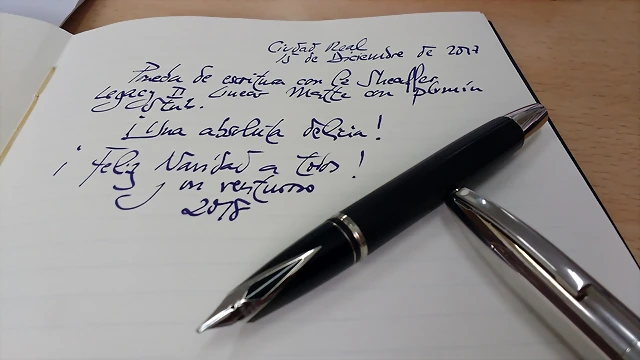 Ciudad Real
15 de Diciembre de 2017
Prueba de escritura con la Sheaffer
Legacy II Linear Matte con plumín
Stub.
¡Una absoluta delicia!
¡Feliz Navidad a todos!
y un venturoso
2018